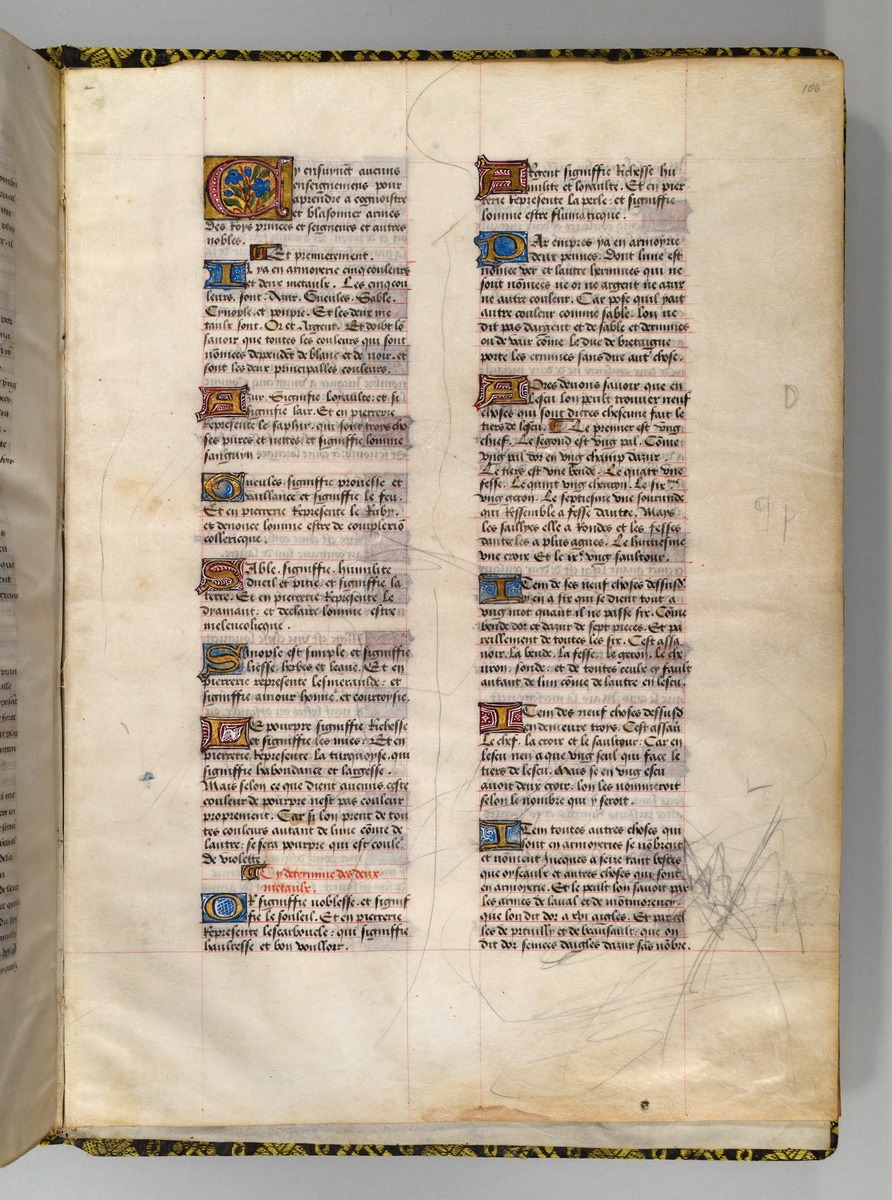 106
Cy ensuyuēt aucuns
enseignemens pour
aprendre a cognoistre
et blasonner armes
Des roys princes et seigneurs et autres
nobles.
Et premierement.
Il ya en armoyerie cinq couleurs
et deux metaulx. Les cinq cou
leurs. sont. Azur. Gueules. Sable.
Cynople et pourpre. Et les deux me
taulx sont. Or et Argent. Et doibt lō
sauoir que toutes les couleurs qui sont
nōmees dependēt de blanc et de noir. et
sont les deux principalles couleurs.
Azur. Signifie loyaulte. et si
signifie lair. Et en pierrerie
represente le saphir. qui sont troys cho
ses pures et nettes. et signiffie lomme
sanguin.
Gueules. signiffie prouesse et
vaillance et signiffie le feu.
Et en pierrerie Represente le Ruby.
et denonce lomme estre de complexiō
collericque.
Sable. signiffie. humilite
dueil et pitie. et signiffie la
terre. Et en pierrerie Represente le
dyamant. et declaire lomme estre
melencolicque.
Sinople est simple. et signiffie
liesse. herbes et leaue. Et en
pierrerie represente lesmeraulde. et
signiffie amour hōneur et courtoysie.
Le pourpre signiffie Richesse
et signiffie les nues. Et en
pierrerie. Represente. la turquoyse. qui
signiffie habondance et largesse.
Mais selon ce que dient aucuns. ceste
couleur de pourpre nest pas couleur
proprement. Car si lon prent de tou
tes couleurs autant de lune cōme de
lautre. se sera pourpre qui est couleur
de violette.
Cy determine des deux
metaulx.
Or signiffie noblesse. et signif
fie le souleil. Et en pierrerie
Represente lescarboucle. qui signiffie
haultesse et bon voulloir.
Argent signiffie Richesse hu
milite et loyaulte. Et en pier
rerie Represente la perle. et signiffie
lomme estre flumaticque.
Par empres ya en armoyrie
deux pennes. Dont lune est
nōmee ver et lautre hermines qui ne
sont nōmees ne or ne argent ne azur
ne autre couleur. Car pose quil yait
autre couleur comme sable. lon ne
dit pas dargent et de sable et dermines
ou de vair cōme le duc de bretaigne
porte les ermines sans dire autre chose.
Apres deuons sauoir que en
lescu lon peult trouuer neuf
choses qui sont dictes chescune fait le
tiers de lescu. Le premier est vng
chief. Le segond est vng pal. Cōme
vng pal dor en vng champ dazur.
Le tiers est vne bende. Le quart vne
fesse. Le quint vng cheuron. Le six me
vng geron. Le septiesme vne
qui Ressemble a fesse dautre. Mays
les saillyes elle a Rondes et les fesses
dautre les a plus agues. Le huitiesme
vne croix Et le ixe vng saultour.
Item de ses neuf choses dessusd
y en a six qui se dient tout a
vng mot quant il ne passe six. Cōme
bende dor et dazur de sept pieces. Et pa
reillement de toutes les six. Cest assa
uoir. la bende. la fesse. le geron. le che
uron. et de toutes y fault
autant de lun cōme de lautre en lescu.
Item des neuf choses dessusd
en demeure troys. Cest assauoir
Le chef. la croix et le saultour. Car en
lescu nen a que vng seul qui face le
tiers de lescu. Mais se en vng escu
auoit deux croix. lon les nommeroit
selon le nombre qui y seroit.
Item toutes autres choses qui
sont en armoyries se nōbrent
et nōment Jucques a seize tant bestes
que oyseaulx et autres choses qui sont
en armoyrie. Et le peult lon sauoir par
les armes de laual et de mōtmorency.
que lon dit dor a xvi aigles. Et par cel
les de pruilly et de beausault. que on
dit dor semees daigles dazur sās nōbre.